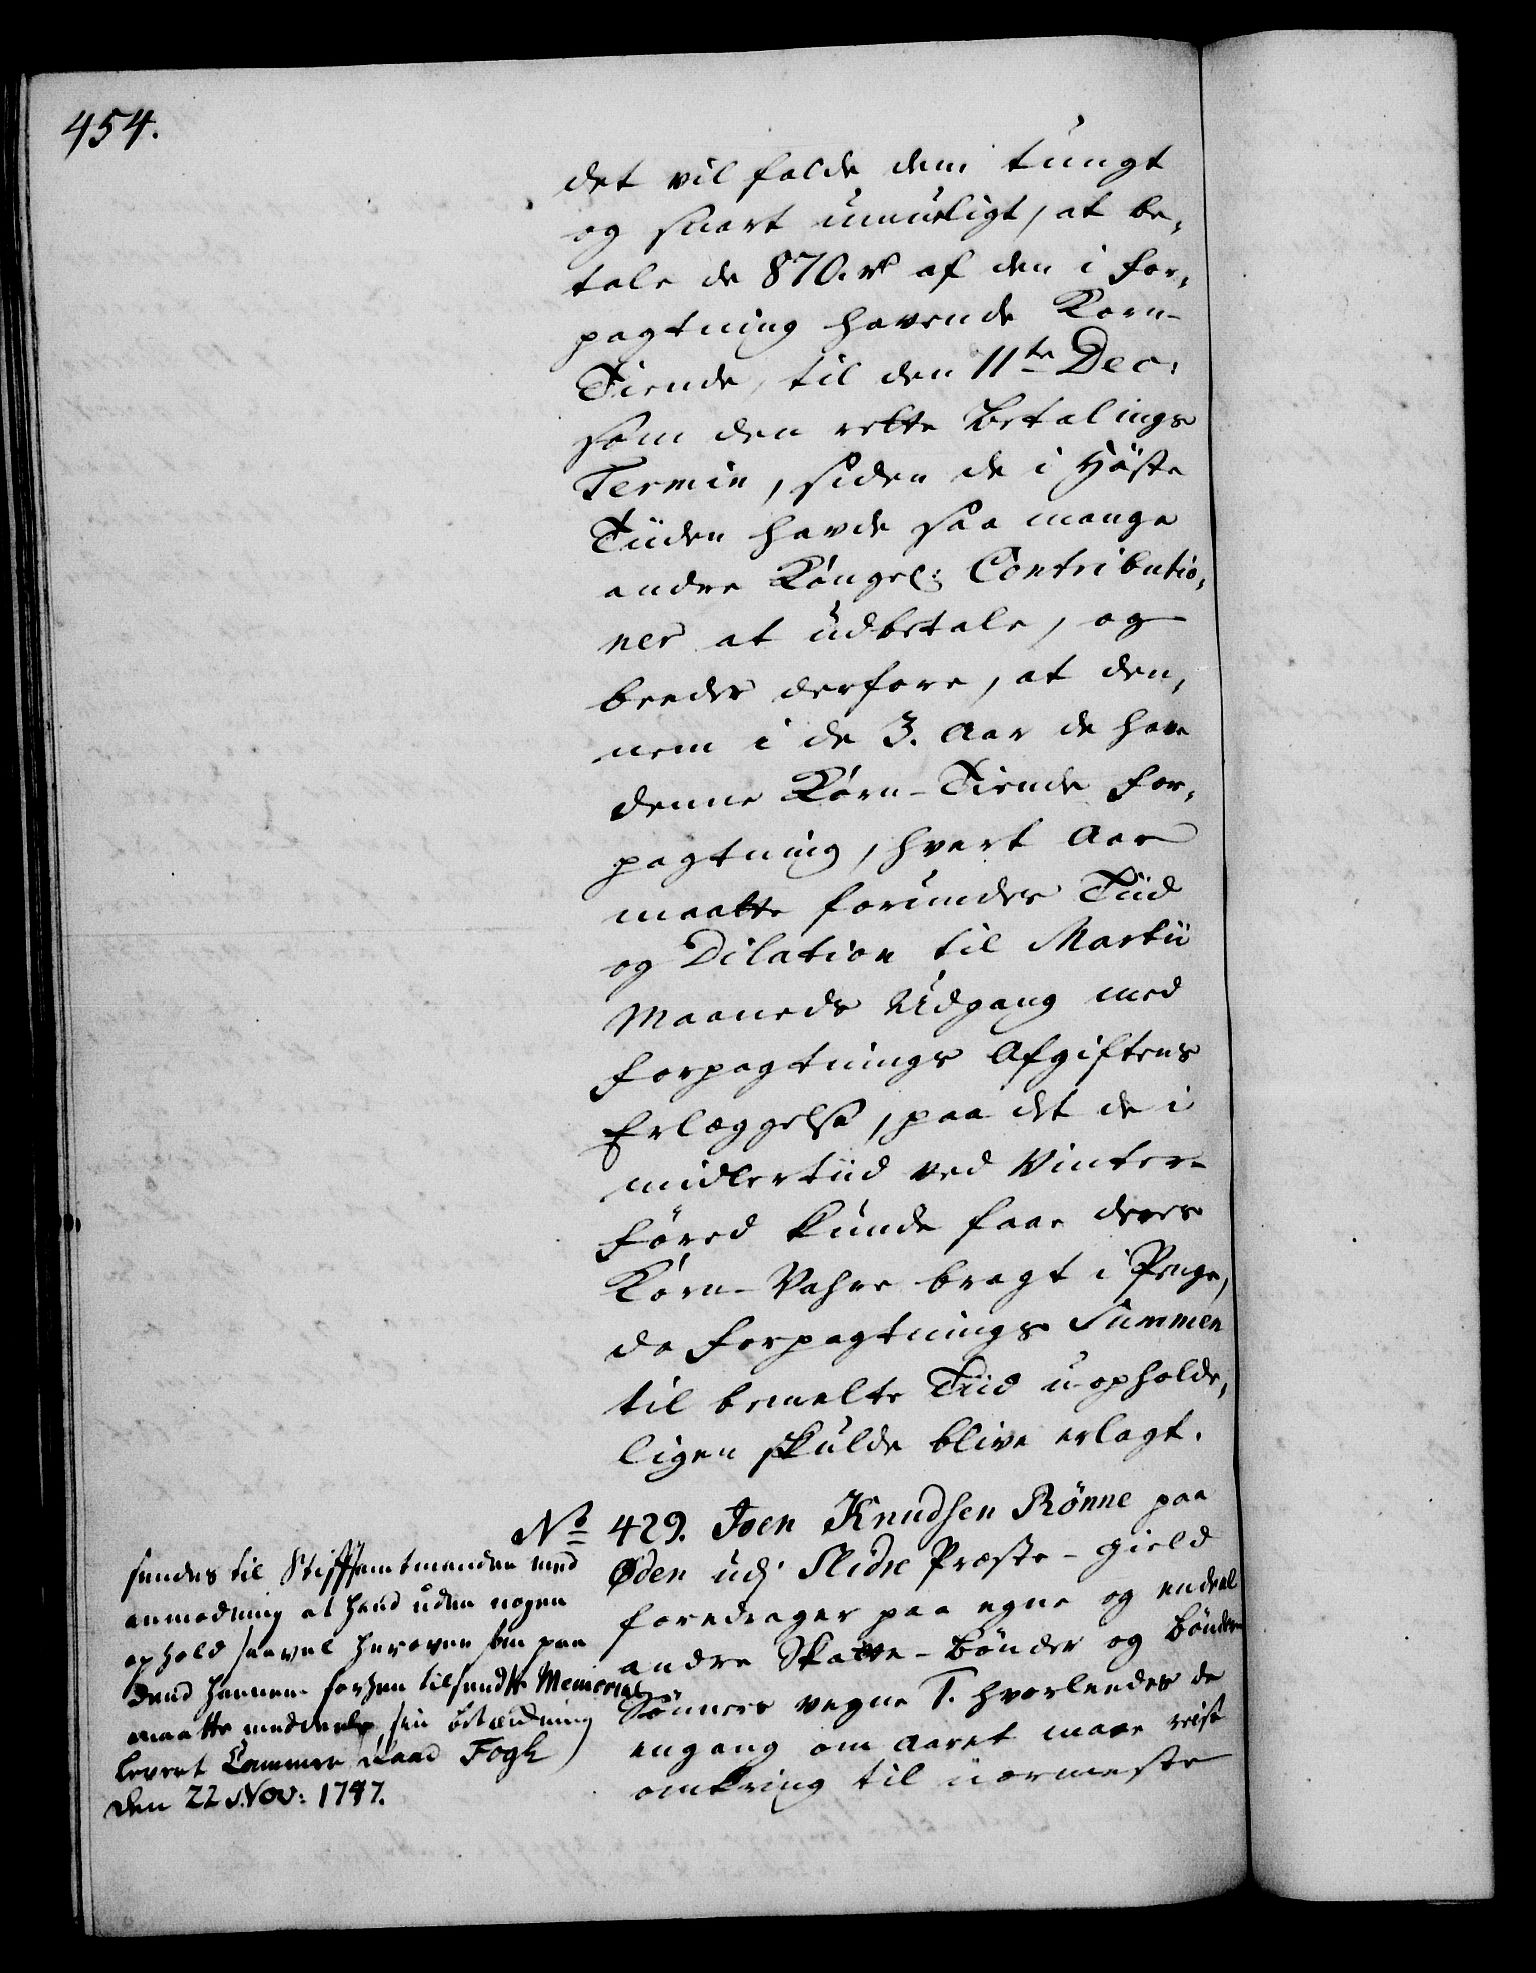 454.
det vil falde dem tungt
og snart umueligt, at be,
tale de 870. rd af den i for,
pagtning havende Korn-
Tiende, til den 11te Dec:
som den rette Betalings
Termin, siden de i Høste
Tiiden havde saa mange
andre Kongel: Contributio,
ner at udbetale, og
beeder derfore, at den,
nem i de 3. Aar de have
denne Korn-Tiende for,
pagtning, hvert Aar
maatte forundes Tiid
og Dilation til Martii
Maaneds Udgang med
Forpagtnings Afgiftens
Erlæggelse, paa det de i
midlertiid ved Vinter-
Føred kunde faae deres
Korn-Vahre bragt i Penge,
da Forpagtnings Summen
til bemelte Tiid uopholde,
ligen skulde blive erlagt.
No 429. Joen Knudsen Rønne paa
Øden udj Slidre Præste-gield
foredrager paa egne og endeel
andre Skatte-Bønder og Bønder
Sønners vegne T. hvorleedes de
engang om Aaret maae reise
omkring til nærmeste
sendes til Stifftamtmanden med
anmodning at hand uden nogen
ophold saavel herover som paa
dend hannem forhen tilsendte Memorial
maatte meddeele sin betænkning
leveret Cammer Raad Fogh
den 22 Nov: 1747.